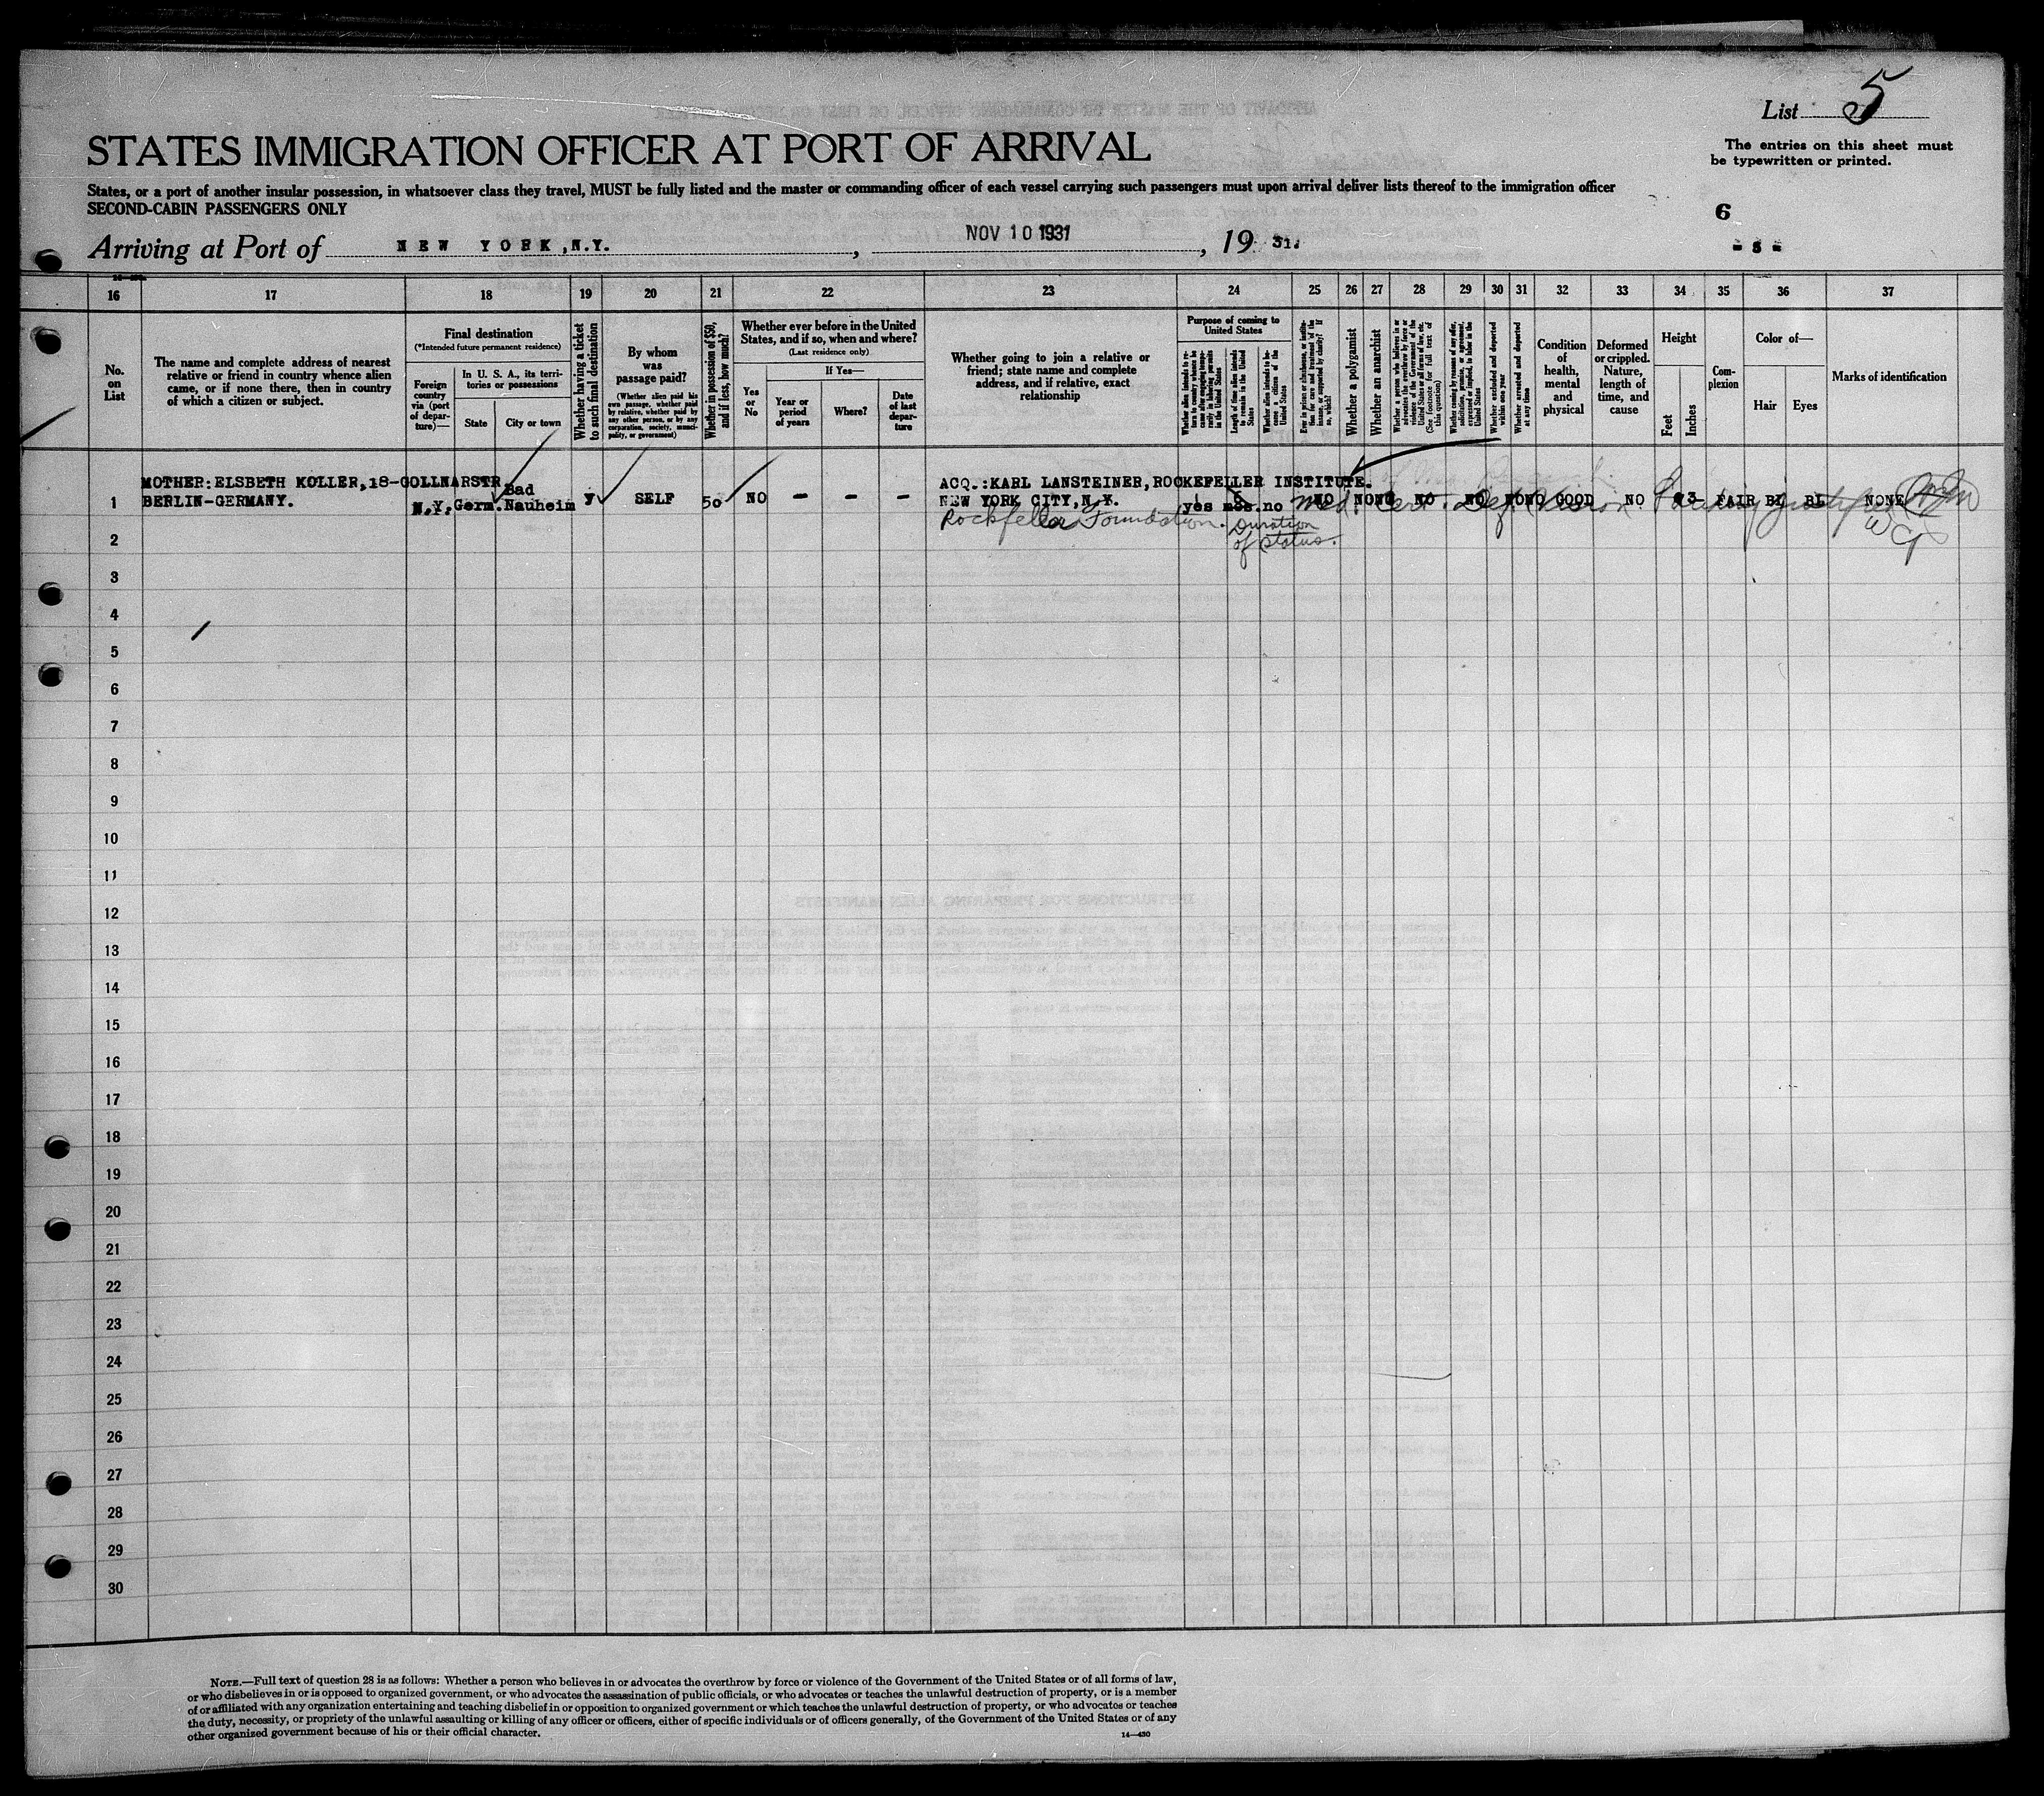 List 5
STATES IMMIGRATION OFFICER AT PORT OF ARRIVAL
The entries on this sheet must
be typewritten or printed.
States, or a port of another insular possession, in whatsoever class they travel, MUST be fully listed and the master or commanding officer of each vessel carrying such passengers must upon arrival deliver lists thereof to the immigration officer
SECOND-CABIN PASSENGERS ONLY
6
Arriving at Port of NEW YORK,N.Y., NOV 10 1931, 19 31.
- 5 -
16 17 18 19 20 21 22 23 24 25 26 27 28 29 30 31 32 33 34 35 36 37
No.
on
List
The name and complete address of nearest
relative or friend in country whence alien
came, or if none there, then in country
of which a citizen or subject.
Final destination
(*Intended future permanent residence)
Foreign
country
via (port
of depar-
ture)—
In U. S. A., its terri-
tories or possessions
State
City or town
Whether having a ticket
to such final destination
By whom
was
passage paid?
(Whether alien paid his
own passage, whether paid
by relative, whether paid by
any other person, or by any
corporation, society, munici-
pality, or government)
Whether in possession of $50,
and if less, how much?
Whether ever before in the United
States, and if so, when and where?
(Last residence only)
Yes
or
No
If Yes—
Year or
period
of years
Where?
Date
of last
depar-
ture
Whether going to join a relative or
friend; state name and complete
address, and if relative, exact
relationship
Purpose of coming to
United States
Whether alien intends to re-
turn to country whence he
came after engaging tempo-
rarily in laboring pursuits
in the United States
Length of time alien intends
to remain in the United
States
Whether alien intends to be-
come a citizen of the
United States
Ever in prison or almshouse, or institu-
tion for care and treatment of the
insane, or supported by charity? If
so, which?
Whether a polygamist
Whether an anarchist
Whether a person who believes in or
advocates the overthrow by force or
violence of the Government of the
United States or all forms of law, etc.
(See footnote for full text of
this question)
Whether coming by reason of any offer,
solicitation, promise, or agreement,
expressed or implied, to labor in the
United States
Whether excluded and deported
within one year
Whether arrested and deported
at any time
Condition
of
health,
mental
and
physical
Deformed
or crippled.
Nature,
length of
time, and
cause
Height
Feet
Inches
Com-
plexion
Color of—
Hair
Eyes
Marks of identification
MOTHER:ELSBETH KOLLER,18-GOLLNARSTR
1 BERLIN-GERMANY. N.Y. Germ. Bad Nauheim y SELF 50 NO - - -
ACQ.:KARL LANSTEINER,ROCKEFELLER INSTITUTE.
NEW YORK CITY,N.Y. yes mos. no NO NONO NO NO NONO GOOD NO FAIR BL BL NONE
Med. Cert. Def.
Rockfeller Foundation. Duration
of status.
2
3
4
5
6
7
8
9
10
11
12
13
14
15
16
17
18
19
20
21
22
23
24
25
26
27
28
29
30
NOTE.—Full text of question 28 is as follows: Whether a person who believes in or advocates the overthrow by force or violence of the Government of the United States or of all forms of law,
or who disbelieves in or is opposed to organized government, or who advocates the assassination of public officials, or who advocates or teaches the unlawful destruction of property, or is a member
of or affiliated with any organization entertaining and teaching disbelief in or opposition to organized government or which teaches the unlawful destruction of property, or who advocates or teaches
the duty, necessity, or propriety of the unlawful assaulting or killing of any officer or officers, either of specific individuals or of officers generally, of the Government of the United States or of any
other organized government because of his or their official character.
14—430